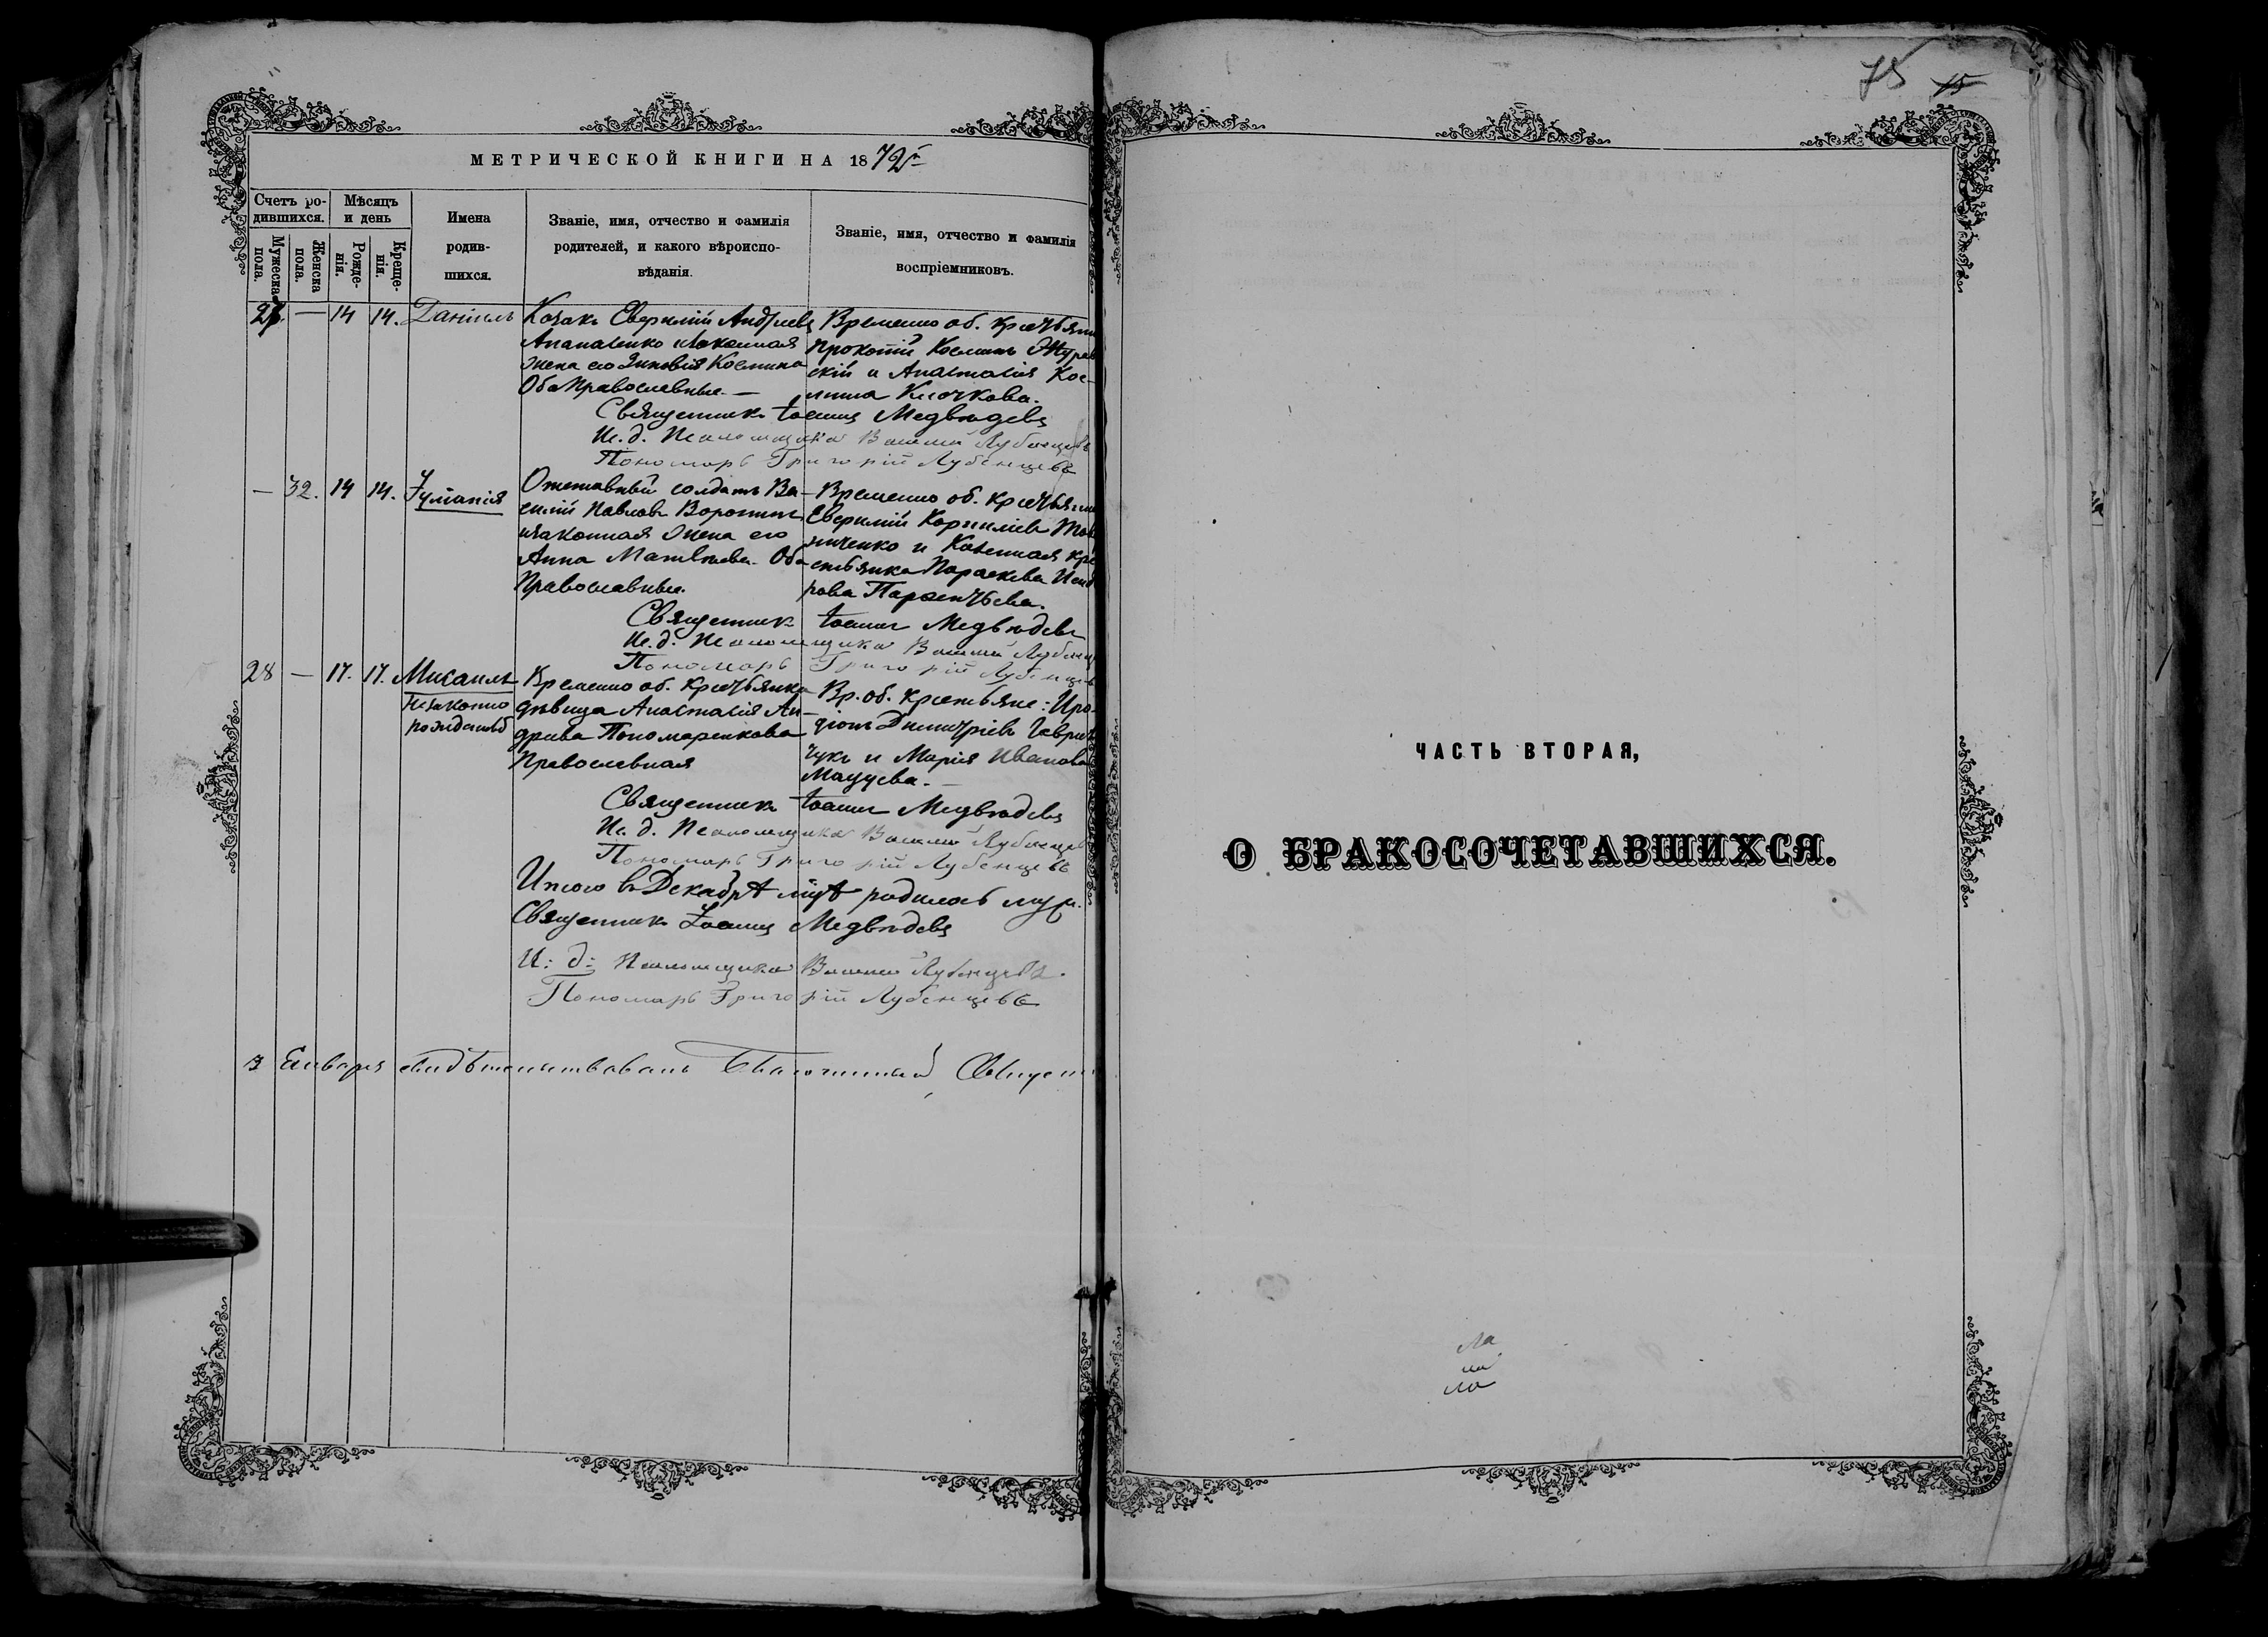 МЕТРИЧЕСКОЙ КНИГИ НА 1872 г.
Счетъ ро-
дившихся.
Мѣсяцъ
и день
Мужеска
пола.
Женска
пола.
Рожде-
нія.
Креще-
нія.
Имена
родив-
шихся.
Званіе, имя, отчество и фамилія
родителей, и какого вѣроиспо-
вѣданія.
Званіе, имя, отчество и фамилія
воспріемниковъ.
27. — 14 14. Даніилъ
Козакъ Евфимій Андреевъ
Апанасенко и законная
жена его Зиновія Космина
Оба Православные. —
Временно об. крестьяни
Прокопій Косминъ Журав
скій и Анастасія Кос-
мина Клочкова.
Священникъ Іоаннъ Медвѣдевъ
Ис. д. Псаломщика Василій Лубенцевъ
Пономарь Григорій Лубенцевъ
— 32. 14 14. Іуліанія
Отставный солдатъ Ва-
силій Павловъ Воронинъ
и законная жена его
Анна Матвѣева. Оба
Православные.
Временно об. крестьяни
Евфимій Корниліевъ
и Казенная кре
стьянка Параскева
рова Парфентьева.
Священникъ Іоаннъ Медвѣдевъ
Ис. д. Псаломщика Василій Лубенц
Пономарь Григорій Лубенцевъ
28 — 17. 17. Мисаилъ
незаконно
рожденный
Временно об. крестьянка
дѣвица Анастасія Ан-
дреева Пономаренкова
Православная
Вр. об. крестьяне: Иро-
діонъ Димитріевъ Гаври
чукъ и Марія Иванова
Мацуева. —
Священникъ Іоаннъ Медвѣдевъ
Ис. д. Псаломщика Василій Лубенцев
Пономарь Григорій Лубенцевъ
Итого въ Декабрѣ м-цѣ родилось муж.
Священникъ Іоаннъ Медвѣдевъ
И: д: Псаломщика Василій Лубенцевъ.
Пономарь Григорій Лубенцевъ
3 Января свидѣтельствовалъ Благочинный Священ
75 15
ЧАСТЬ ВТОРАЯ,
О БРАКОСОЧЕТАВШИХСЯ.